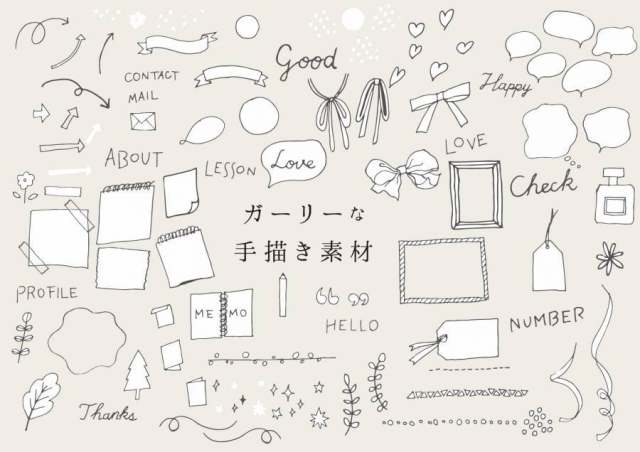 Good
CONTACT
MAIL
Happy
ABOUT
LESSON
Love
LOVE
Check
ガーリーな
手描き素材
PROFILE
ME MO
HELLO
NUMBER
Thanks